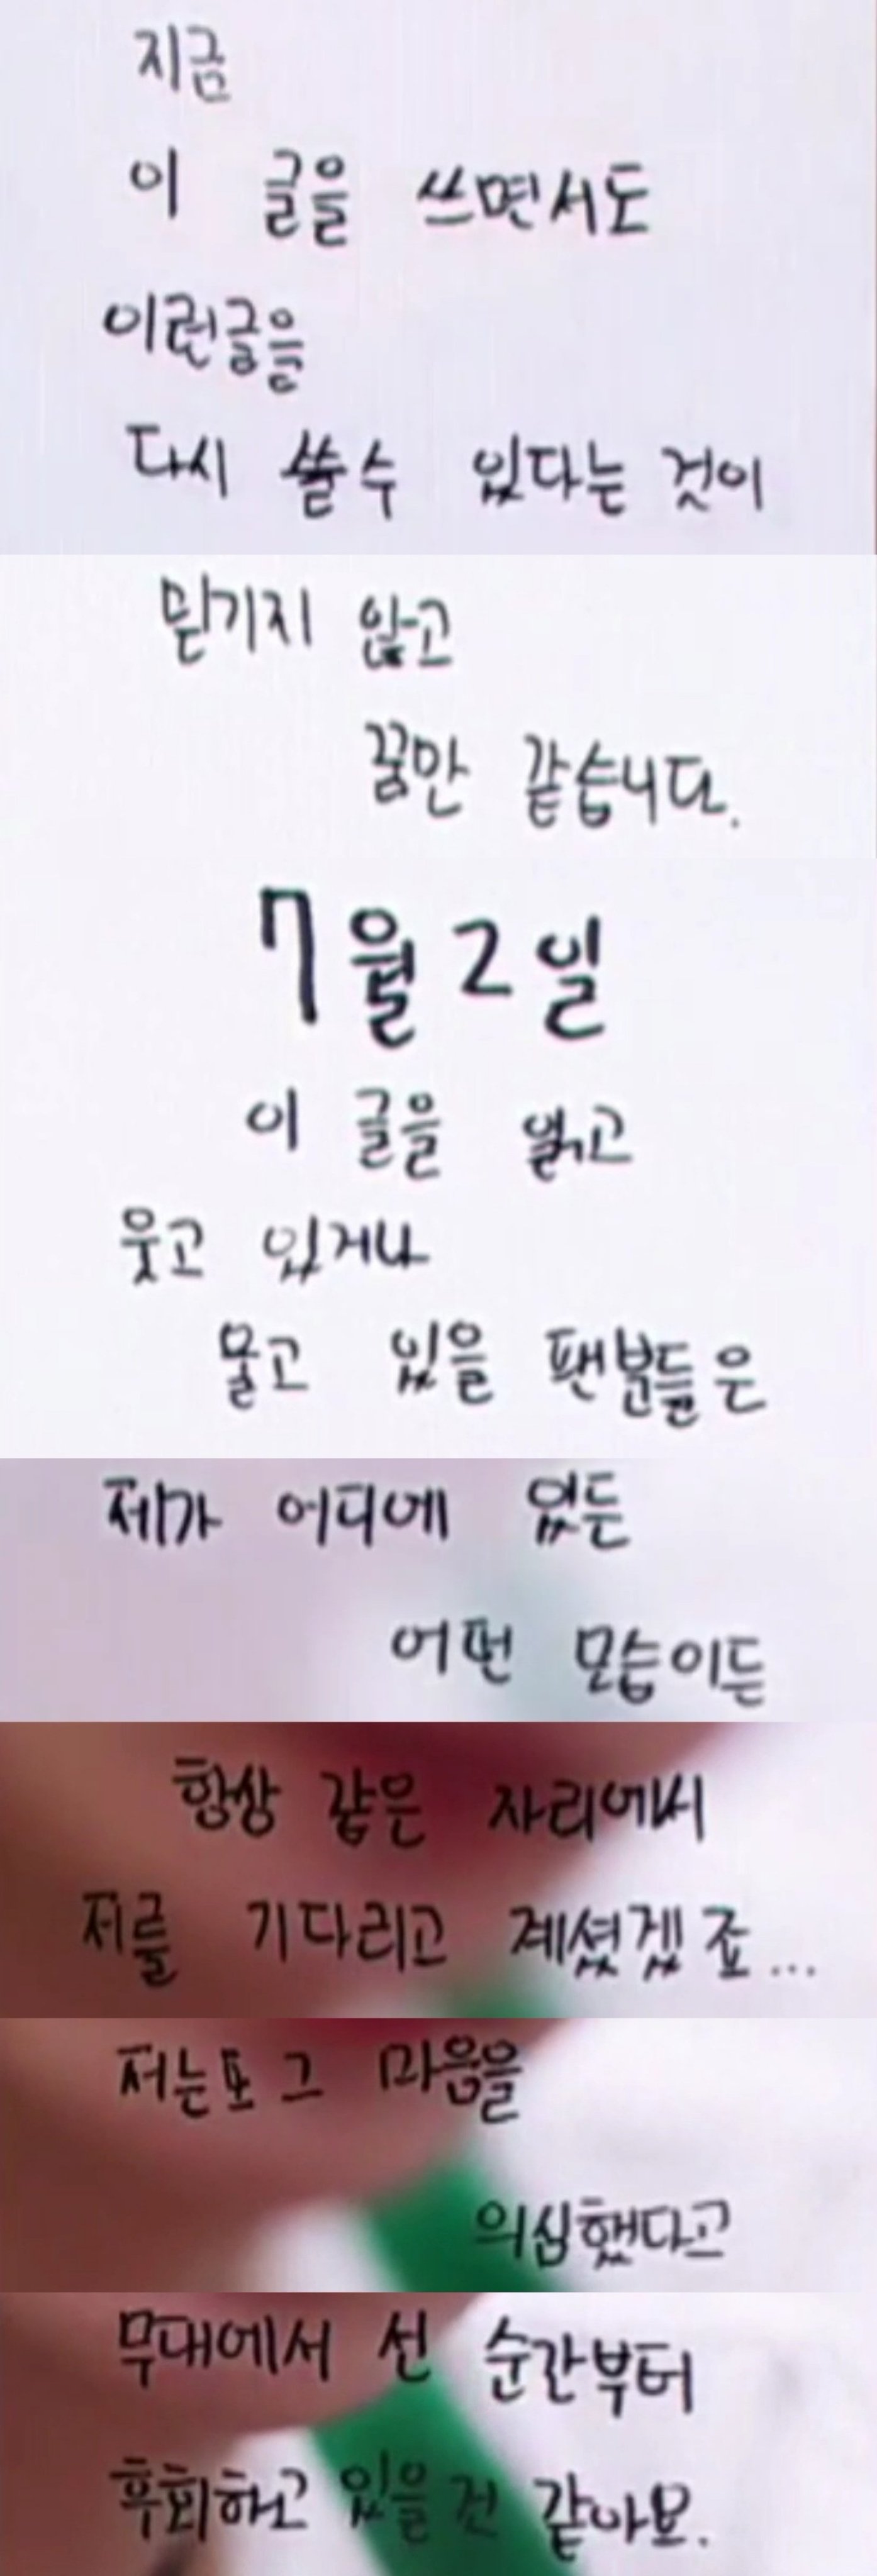 지금
이 글을 쓰면서도
이런글을
다시 쓸수 있다는 것이
믿기지 않고
꿈만 같습니다.
7월 2일
이 글을 읽고
웃고 있거나
울고 있을 팬분들은
제가 어디에 있든
어떤 모습이든
항상 같은 자리에서
저를 기다리고 계셨겠죠...
저는또 그 마음을
의심했다고
무대에서 선 순간부터
후회하고 있을 것 같아요.